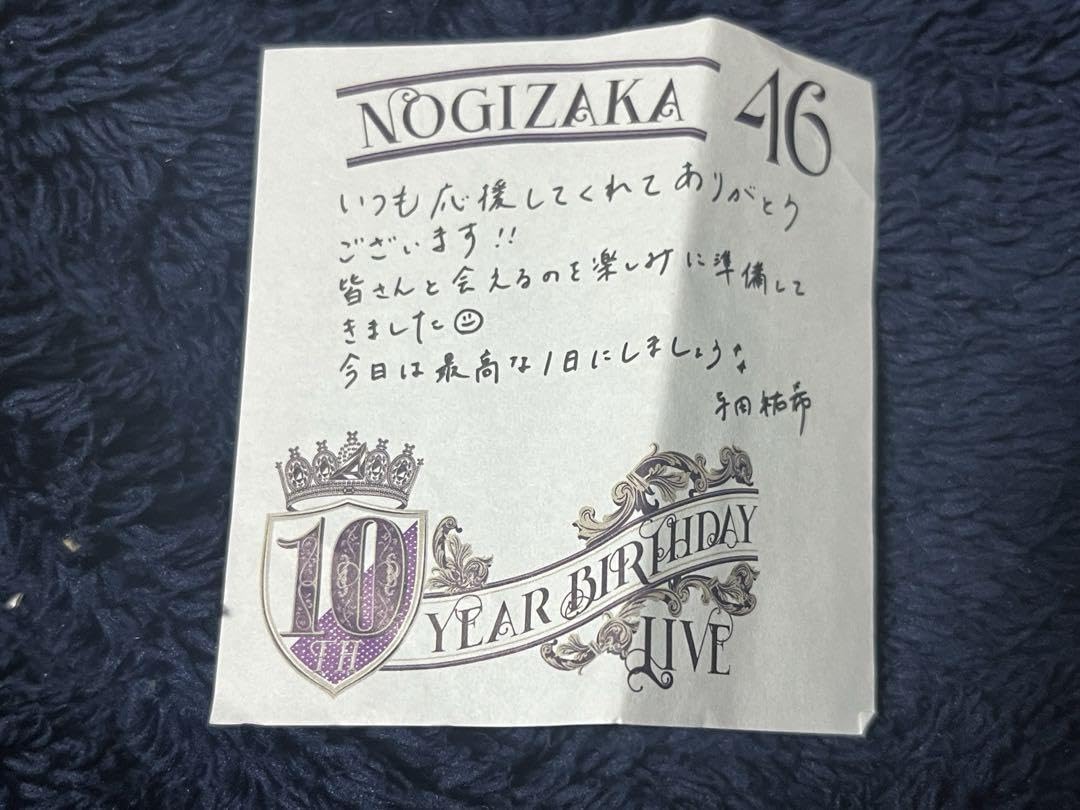 NOGIZAKA 46
いつも応援してくれてありがとう
ございます!!
皆さんと会えるのを楽しみに準備して
きました☺
今日は最高な1日にしましょう!!
与田祐希
10
TH
YEAR BIRTHDAY
LIVE